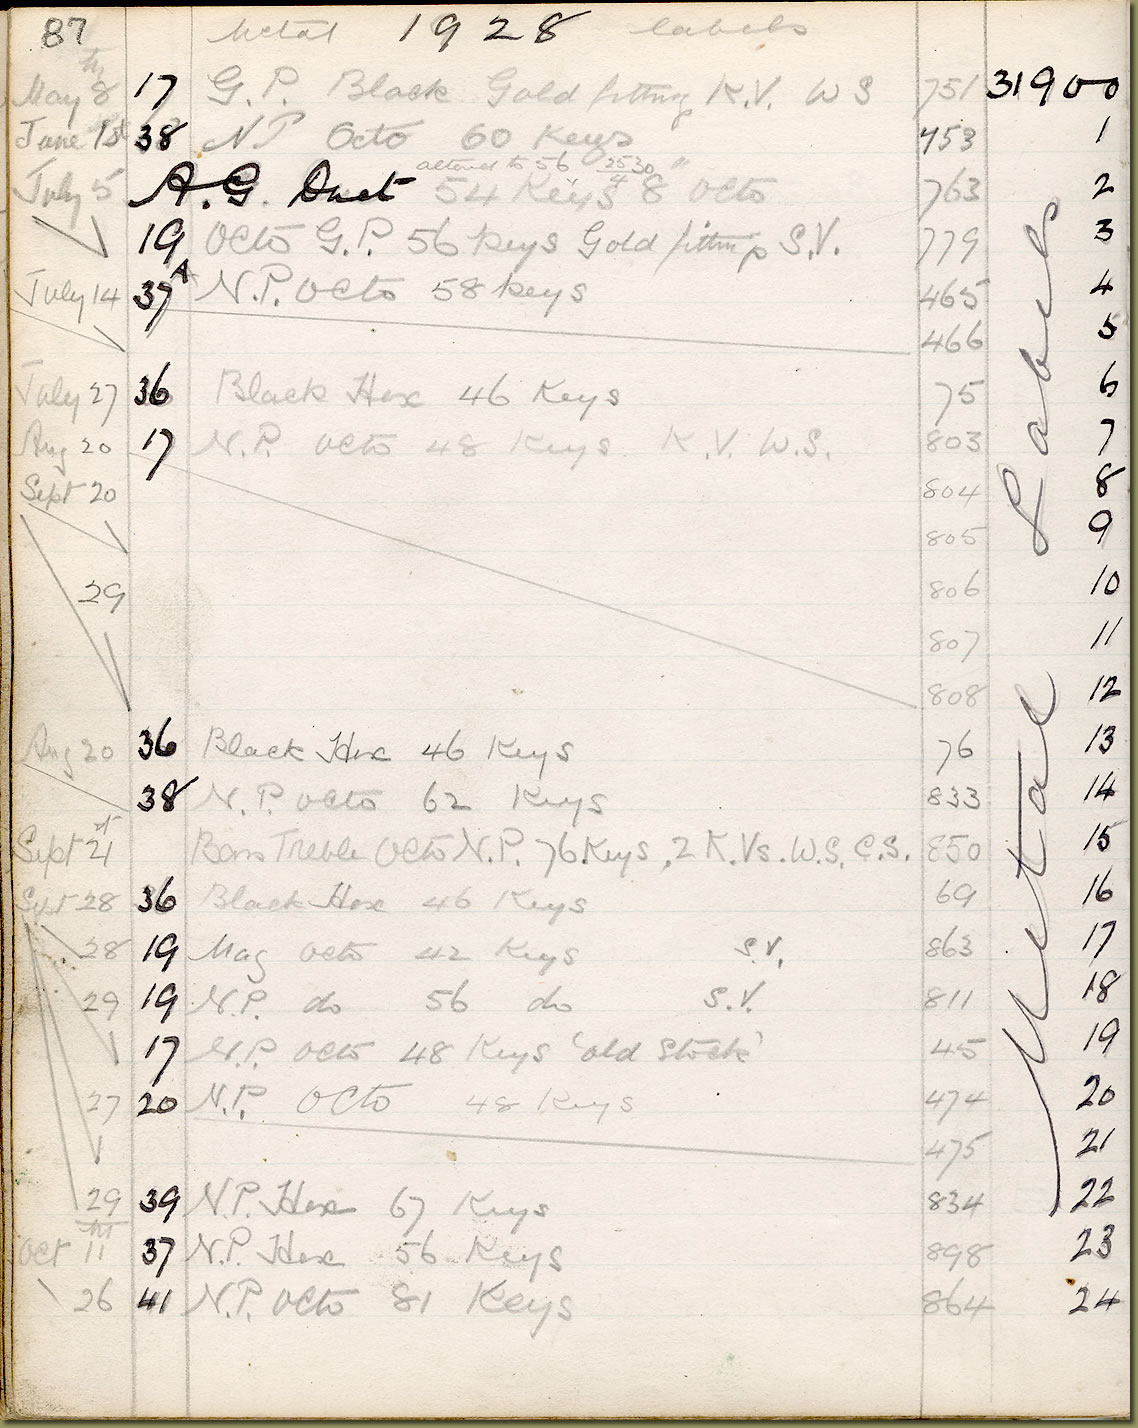 87 Metal 1928 labels
May 8th 17 G.P. Black Gold fitting K.V. W S 751 31900
June 1st 38 N P Octo 60 Keys 753 1
altered to 56 2530/4 "
July 5 A.G. Duet 54 Keys 8 Octo 763 2
19 Octo G.P. 56 Keys Gold fittings S.V. 779 3
July 14 37A N.P. Octo 58 Keys 465 4
466 5
July 27 36 Black Hex 46 Keys 75 6
Aug 20 17 N.P. Octo 48 Keys K.V. W.S. 803 7
Sept 20 804 8
805 9
29 806 10
807 11
808 12
Aug 20 36 Black Hex 46 Keys 76 13
38 N.P. Octo 62 Keys 833 14
Sept 21st Bass Treble Octo N.P. 76 Keys, 2 K.Vs. W.S. C.S. 850 15
Sept 28 36 Black Hex 46 Keys 69 16
28 19 Mag Octo 42 Keys S.V. 863 17
29 19 N.P. do 56 do S.V. 811 18
17 N.P. Octo 48 Keys 'old Stock' 45 19
27 20 N.P. Octo 48 Keys 474 20
475 21
29 39 N.P. Hex 67 Keys 834 22
Oct 11th 37 N.P. Hex 56 Keys 898 23
26 41 N.P. Octo 81 Keys 864 24
Metal Labels